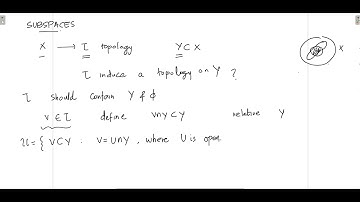 SUBSPACES
X → τ topology Y⊂X
τ induce a topology on Y ?
τ should contain Y & ϕ
V ∈ τ define V∩Y ⊂ Y relative Y
= { V⊂Y : V=U∩Y , where U is open
X